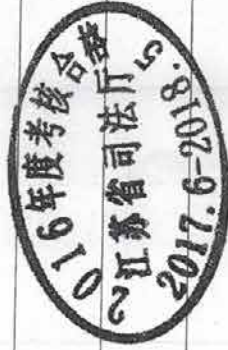 2016年度考核合格
江苏省司法厅
2017.6-2018.5